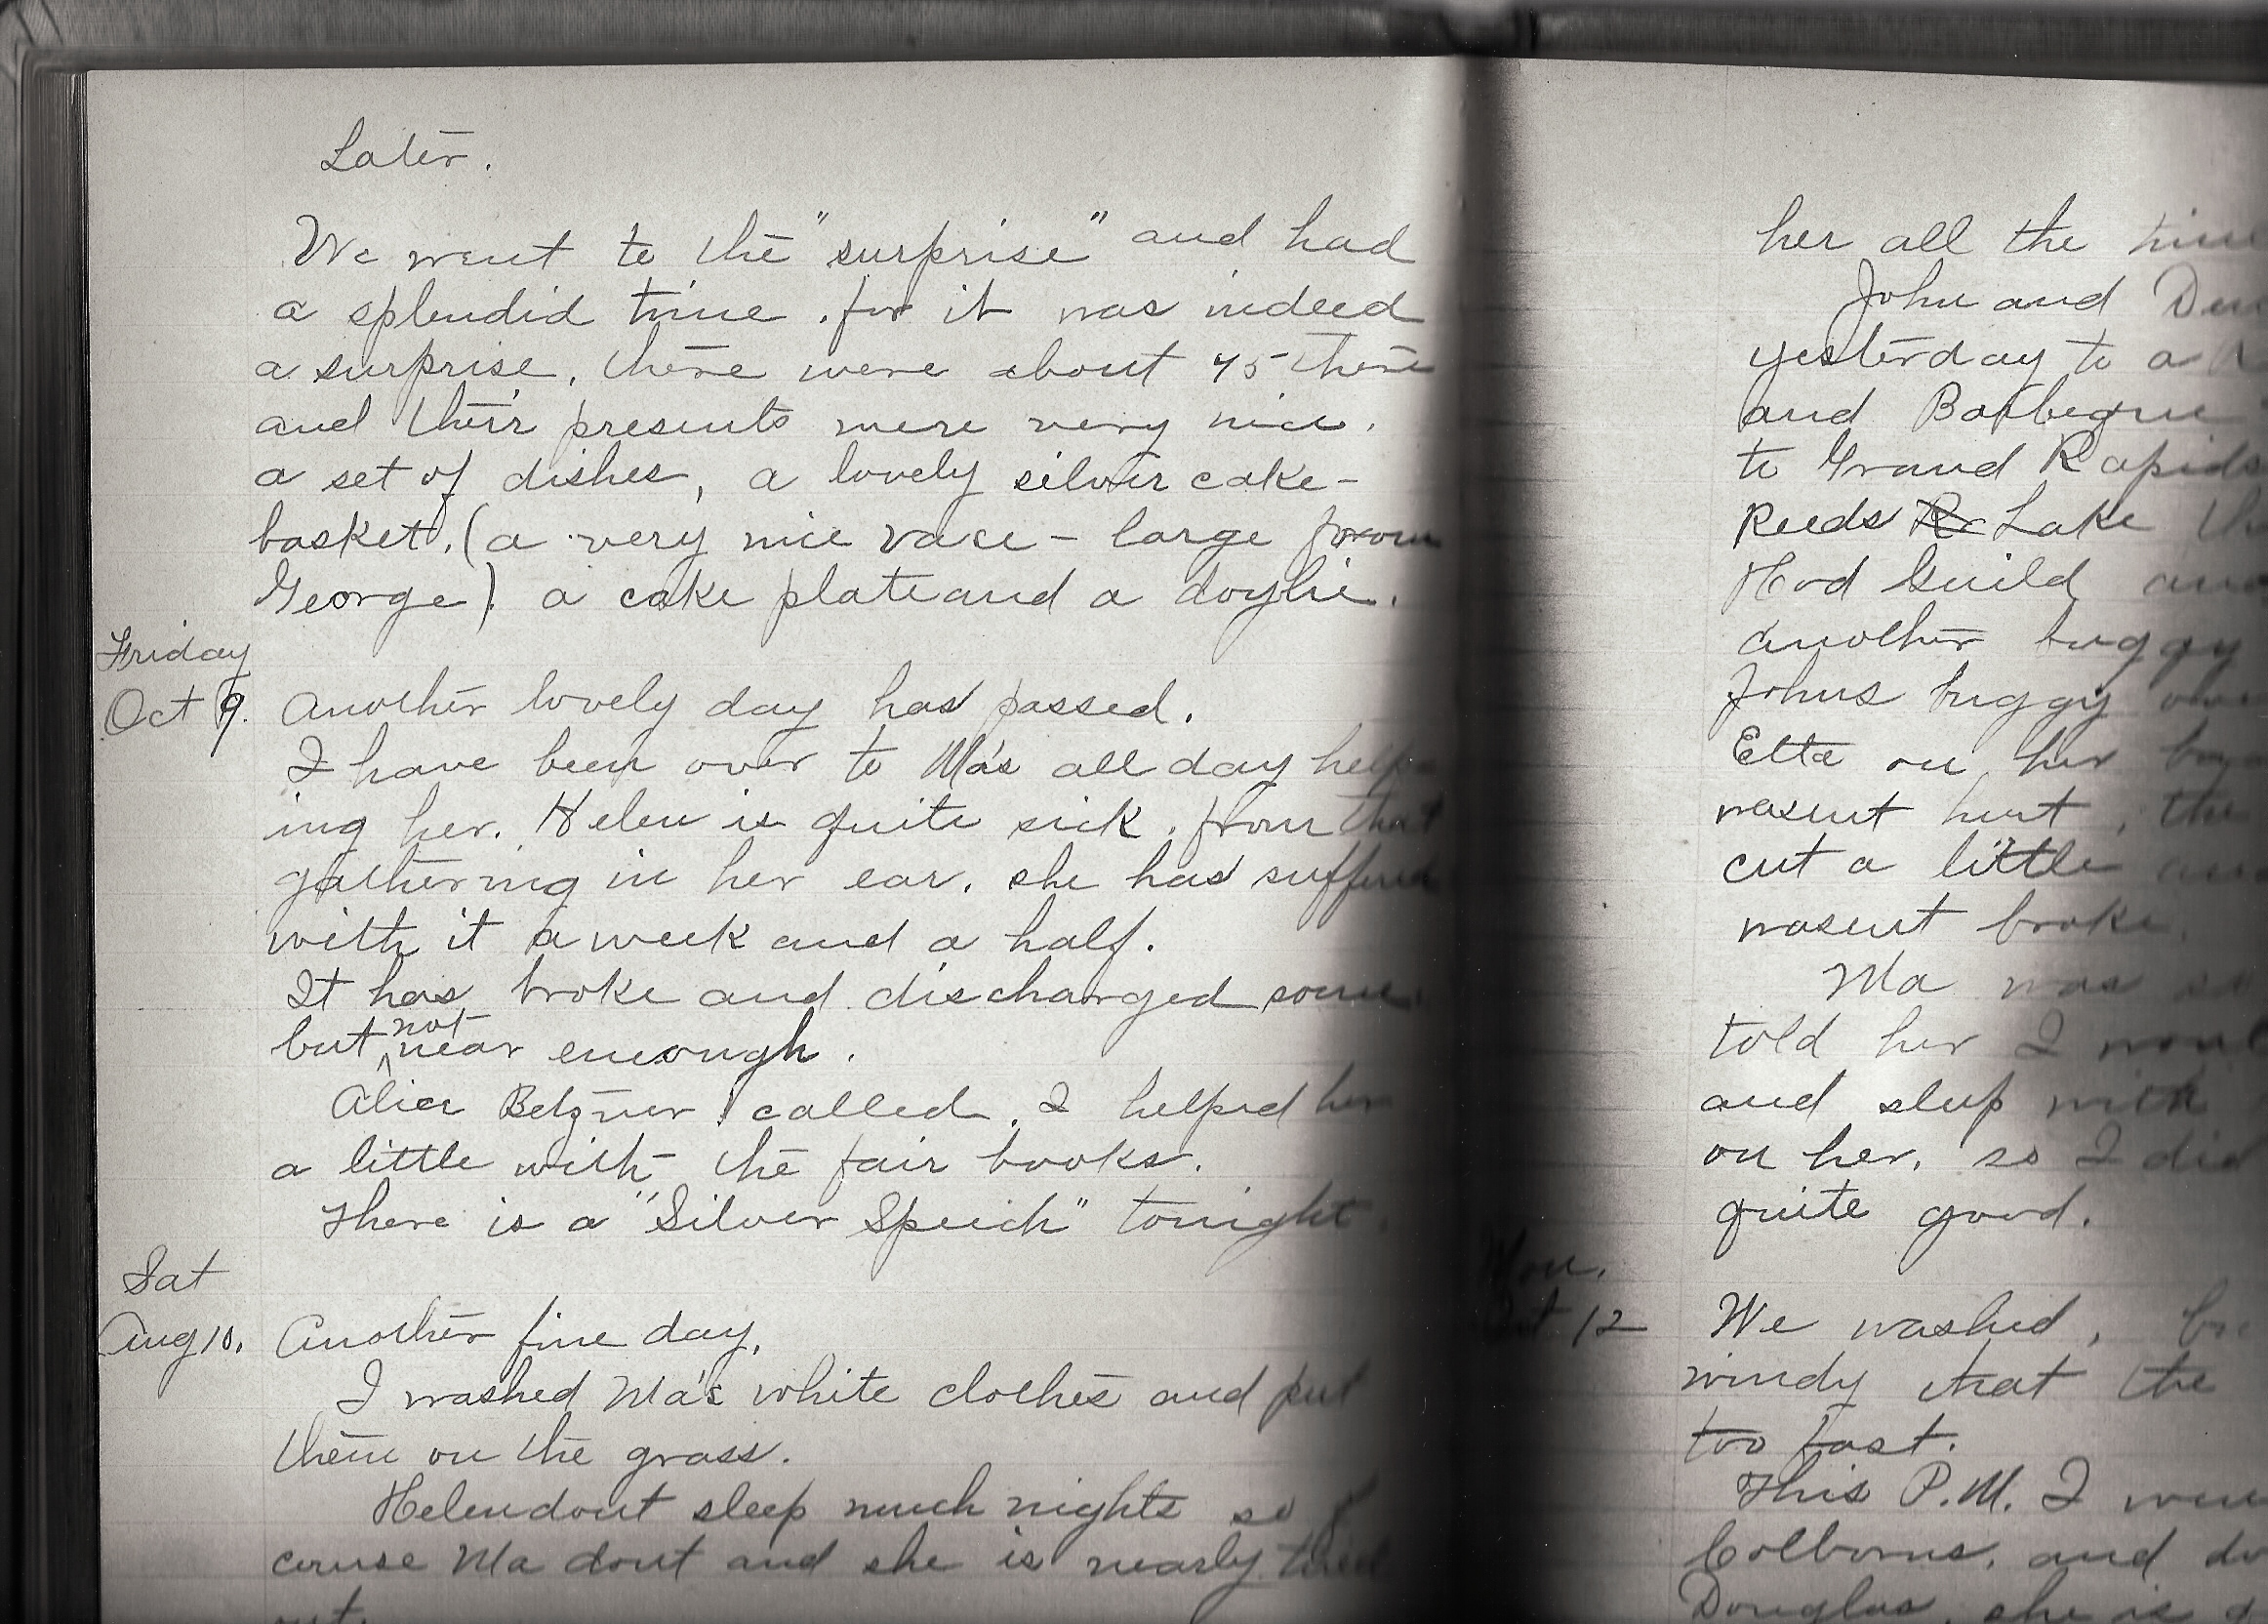 Later.
We went to the "surprise" and had
a splendid time. for it was indeed
a surprise, there were about 45 there
and their presents were very nice.
a set of dishes, a lovely silver cake-
basket, (a very nice vace - large from
George). a cake plate and a doylie.
Friday
Oct 9. Another lovely day has passed.
I have been over to Ma's all day help
ing her. Helen is quite sick. from that
gathering in her ear. she has suffered
with it a week and a half.
It has broke and discharged some
but not near enough.
Alice Belzner called. I helped her
a little with the fair books.
There is a "Silver Speech" tonight.
Sat
Aug 10. Another fine day.
I washed Ma's white clothes and put
them on the grass.
Helen dont sleep much nights so of
couruse Ma dont and she is nearly tired
out.
her all the time
John and
yesterday to a
and Barbeque
to Grand Rapids
Reeds Lake
Hod Guild and
another buggy
Johns buggy over
Etta on her
wasent hurt, the
cut a little and
wasent broke
Ma was so
told her I
and sleep with
on her. so I did
quite good.
Mon.
Oct 12 We washed,
windy that the
too fast.
This P.M. I went
Colborns. and
Douglas, she is